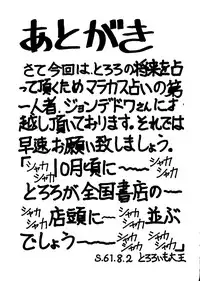 あとがき
さて今回は、とろろの将来を占
って頂くためマラカス占いの第
一人者、ジョンデドワさんにお
越し頂いております。それでは
早速お願い致しましょう。
「シャカ シャカ 10月頃に〜シャカ シャカ〜シャカ シャカ
とろろが全国書店の〜
シャカ シャカ 店頭に〜シャカ シャカ 並ぶ
でしょう〜シャカ シャカ〜シャカ シャカ」
S.61.8.2 とろろいも大王